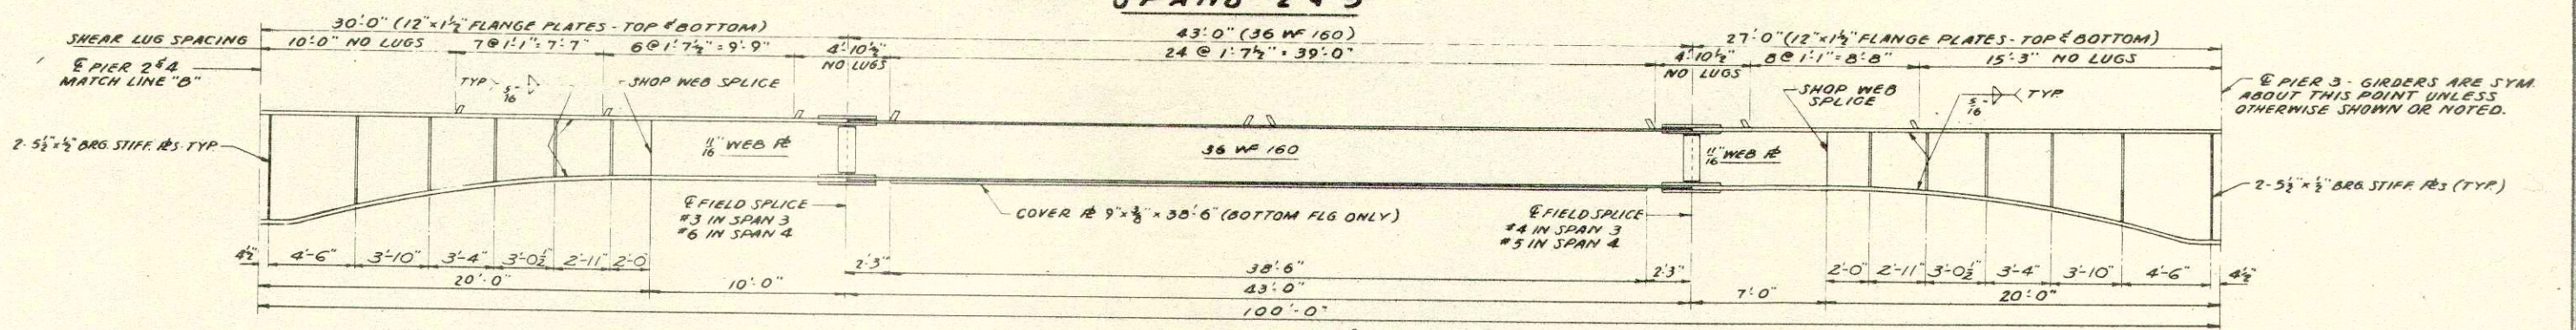 SPANS 2 & 3
30'-0" (12"x1½" FLANGE PLATES - TOP & BOTTOM)
43'-0" (36 WF 160)
27'-0" (12"x1½" FLANGE PLATES - TOP & BOTTOM)
SHEAR LUG SPACING
10'-0" NO LUGS
7 @ 1'-1" = 7'-7"
6 @ 1'-7½" = 9'-9"
4'-10½"
NO LUGS
24 @ 1'-7½" = 39'-0"
4'-10½"
NO LUGS
8 @ 1'-1" = 8'-8"
15'-3" NO LUGS
℄ PIER 2 & 4
MATCH LINE "B"
TYP
5/16
SHOP WEB SPLICE
SHOP WEB
SPLICE
5/16
TYP.
℄ PIER 3 - GIRDERS ARE SYM.
ABOUT THIS POINT UNLESS
OTHERWISE SHOWN OR NOTED.
2-5½"x½" BRG. STIFF. PLS. TYP.
11/16" WEB PL
36 WF 160
11/16" WEB PL
2-5½"x½" BRG. STIFF. PLS (TYP.)
℄ FIELD SPLICE
#3 IN SPAN 3
#6 IN SPAN 4
COVER PL 9"x⅜"x38'-6" (BOTTOM FLG ONLY)
℄ FIELD SPLICE
#4 IN SPAN 3
#5 IN SPAN 4
4½"
4'-6"
3'-10"
3'-4"
3'-0½"
2'-11"
2'-0
2'-3"
38'-6"
2'-3"
2'-0"
2'-11"
3'-0½"
3'-4"
3'-10"
4'-6"
4½"
20'-0"
10'-0"
43'-0"
7'-0"
20'-0"
100'-0"